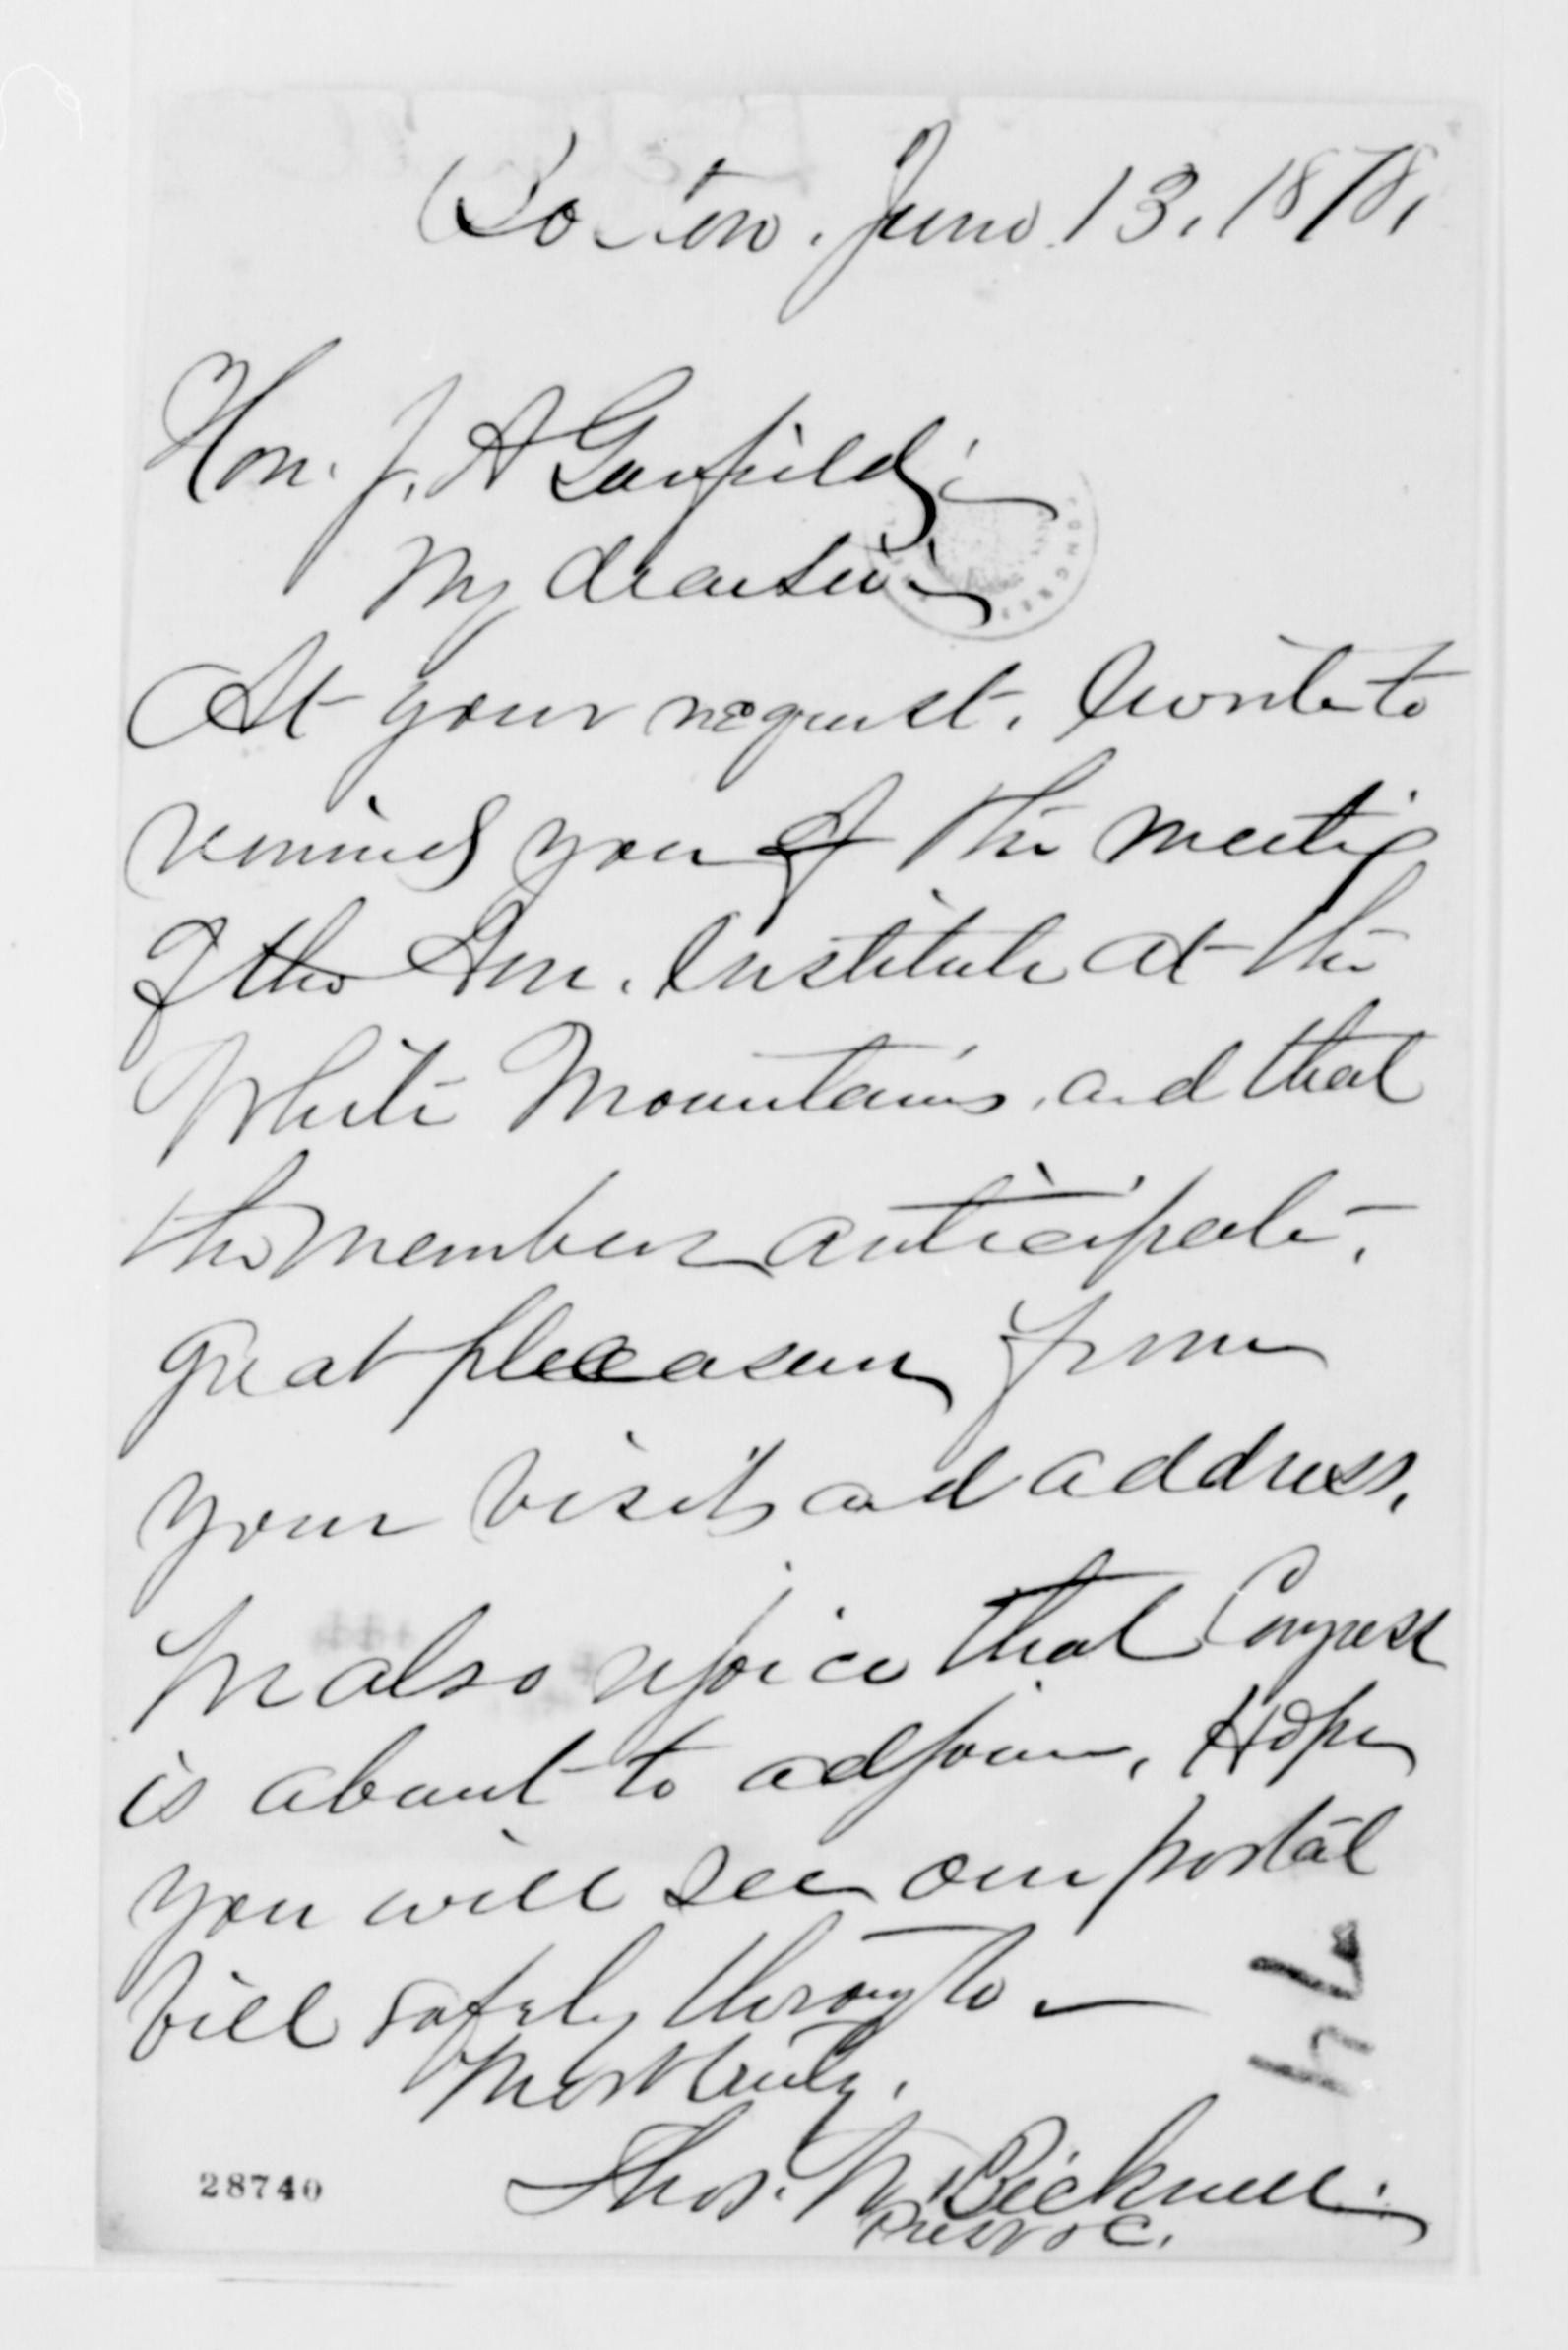 Boston. June 13, 1878,
Hon. J. A Garfield;
My dear Sir:
At your request, I write to
remind you of the meeting
of the Am. Institute at the
White Mountains, and that
the members anticipate,
great pleasure from
your visit and address.
We also rejoice that Congress
is about to adjourn, Hope
you will see our postal
bill safely through —
Most truly,
Thos. W. Bicknell.
28740
CONGRESS